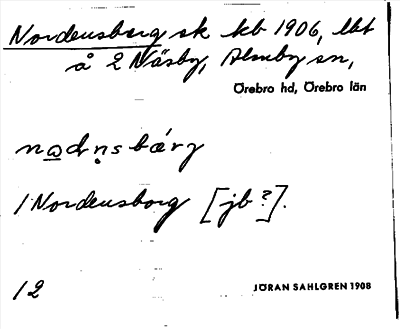 Nordensborg sk kb 1906, lht
å 2 Näsby, Almby sn,
Örebro hd, Örebro län
nⱥdn̥sbárj
1 Nordensborg [jb ?].
12
JÖRAN SAHLGREN 1908